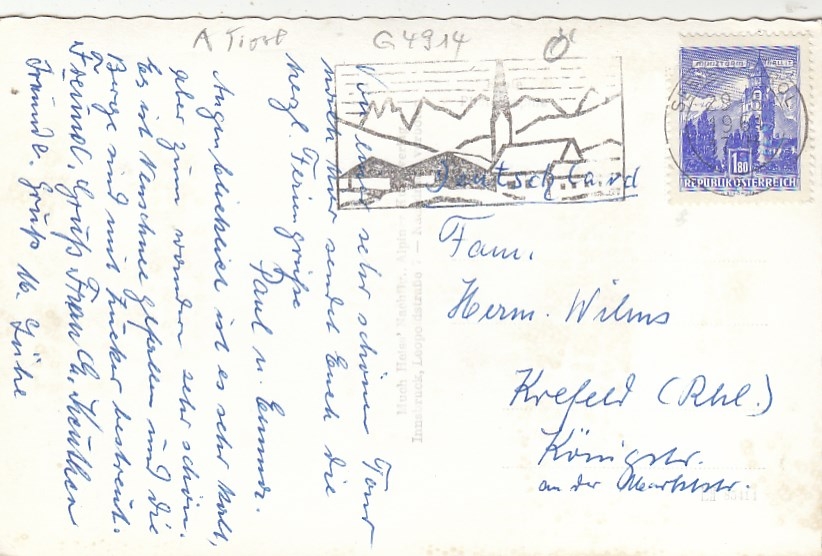 A Tirol
G4914
Von einer sehr schönen Tour
noch hier sendet Euch die
herzl. Feriengrüße
Paul u. Emmi.
Augenblicklich ist es sehr kalt,
aber zum wandern sehr schön.
Es ist Neuschnee gefallen und die
Berge sind mit Zucker bestreut.
Freundl. Grüß Frau
Freunde. Gruß M.
MÜNZTURM HALL i.T.
1.80
REPUBLIK ÖSTERREICH
Deutschland
Fam.
Herm. Wilms
Krefeld (Rhl.)
Königstr.
an der Marktstr.
Innsbruck, Leopoldstraße